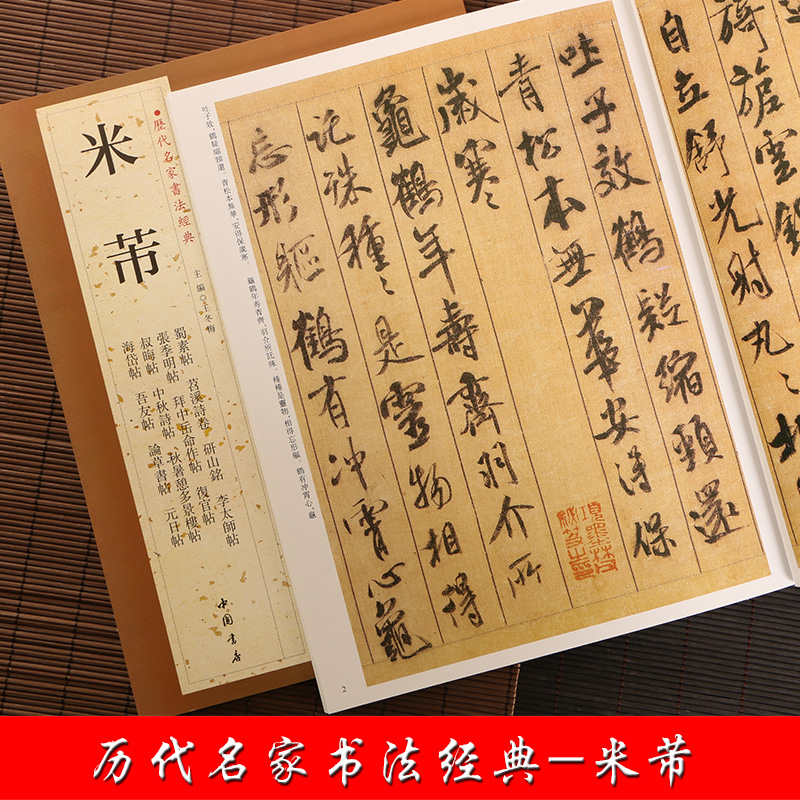 歷代名家書法經典
米芾
主編○王冬梅
蜀素帖 苕溪詩卷 研山銘 李太師帖
張季明帖 拜中岳命作帖 復官帖
叔晦帖 中秋詩帖 秋暑憩多景樓帖
海岱帖 吾友帖 論草書帖 元日帖
中國書店
自立舒光射丸
吐子效鶴疑縮頸還
青松本無華安得保
歲寒
龜鶴年壽齊羽介所
託殊種〻是靈物相得
忘形軀鶴有冲霄心龜
吐子效,鶴疑縮頸還。青松本無華,安得保歲寒。 龜鶴年壽齊,羽介所託殊。種種是靈物,相得忘形軀。鶴有冲霄心,龜
2
历代名家书法经典—米芾